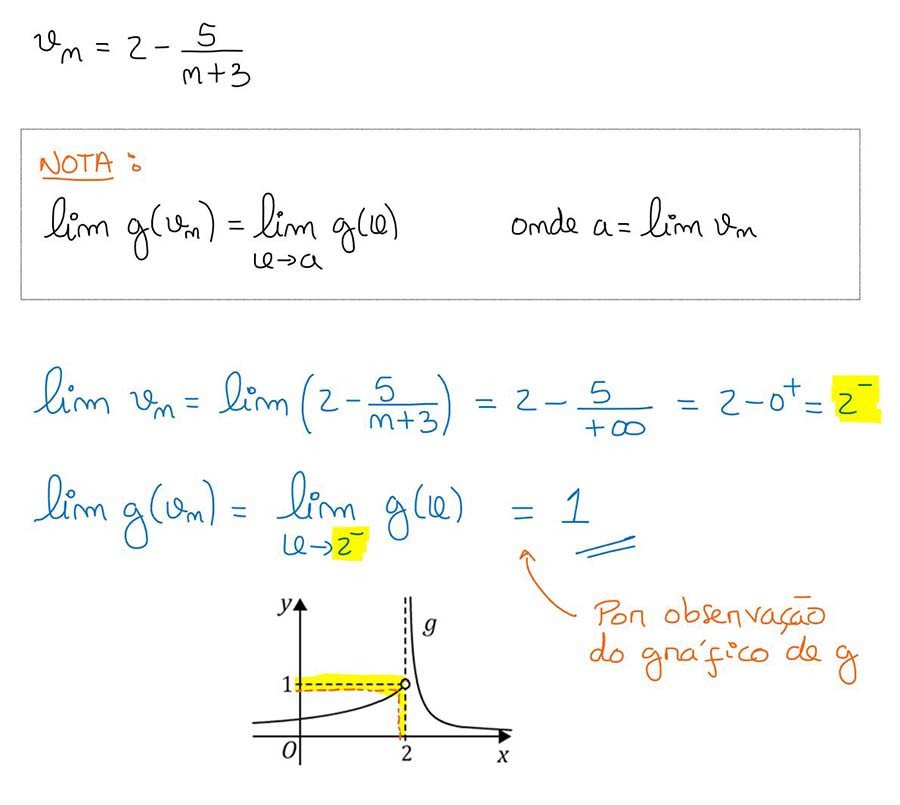 vₙ = 2 - 5/(n+3)
NOTA :
lim g(vₙ) = lim g(x) onde a = lim vₙ
x→a
lim vₙ = lim (2 - 5/(n+3)) = 2 - 5/+∞ = 2 - 0⁺ = 2⁻
lim g(vₙ) = lim g(x) = 1
x→2⁻
Por observação
do gráfico de g
y
g
1
O
2
x